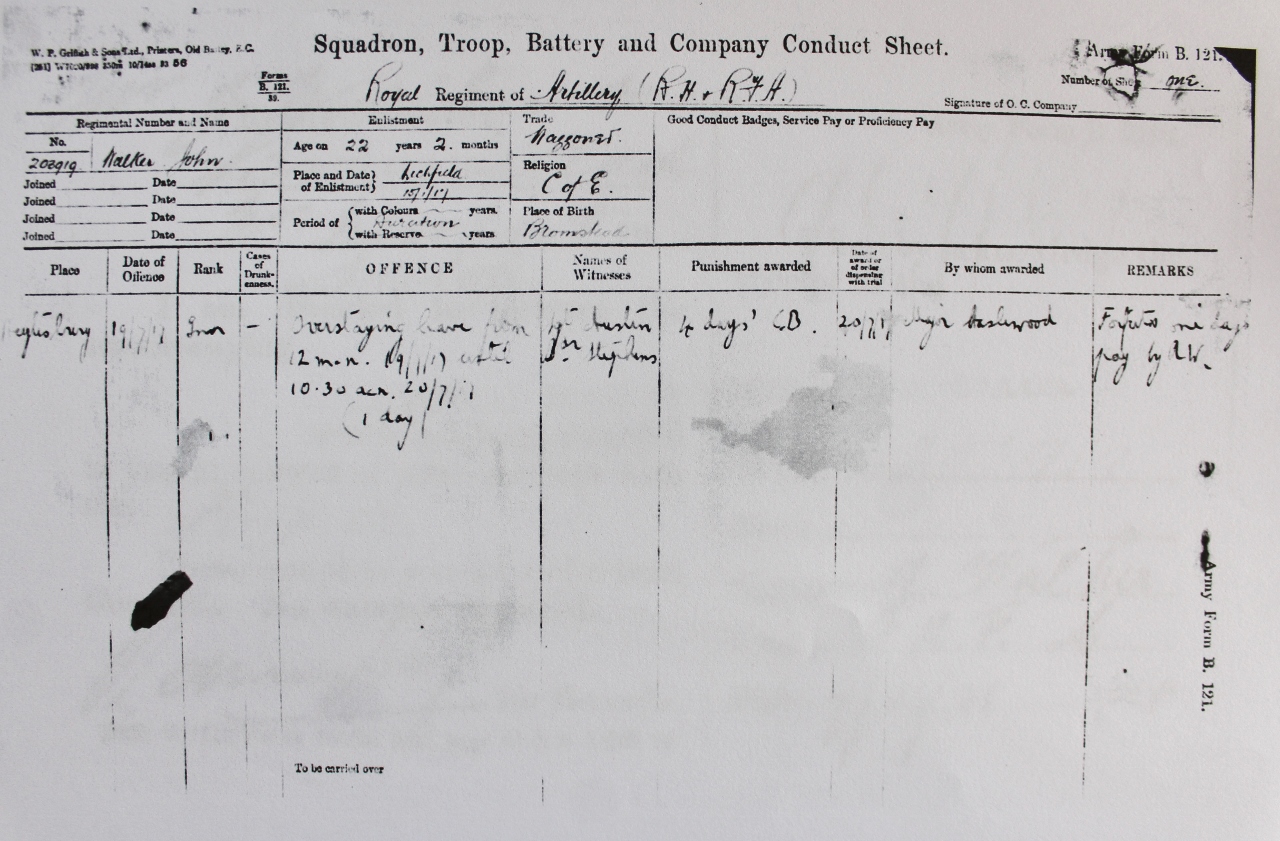 W. P. Griffith & Sons Ltd., Printers, Old Bailey, E.C.
Squadron, Troop, Battery and Company Conduct Sheet.
Army Form B. 121.
Forms
B. 121.
39.
Number of Sheet one.
Royal Regiment of Artillery (R.H. & R.F.A.)
Signature of O. C. Company
Regimental Number and Name
Enlistment
Trade
Good Conduct Badges, Service Pay or Proficiency Pay
No.
Age on 22 years 2. months
Waggoner.
202919 Walker John.
Religion
Joined Date
Place and Date of Enlistment} Lichfield
C of E.
Joined Date
Joined Date
Period of {with Colours years.
Place of Birth
Duration
Joined Date
{with Reserve years
Place
Date of Offence
Rank
Cases of Drunkenness.
OFFENCE
Names of Witnesses
Punishment awarded
Date of award or of order dispensing with trial
By whom awarded
REMARKS
19/7/17
Gnr
-
Overstaying leave from
Austin
4 days' CB.
20/7/17
Major
Forfeits one days
12 m.n.
until
Stephens
pay by R.W.
10.30 a.m. 20/7/17
(1 day)
Army Form B. 121.
To be carried over